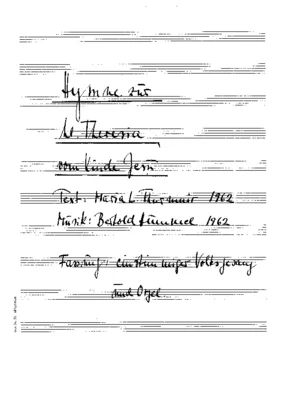 Hymne zur
hl. Theresia
vom Kinde Jesu
Text: Maria L. Thurmair 1962
Musik: Bertold Hummel 1962
Fassung: einstimmiger Volksgesang
und Orgel